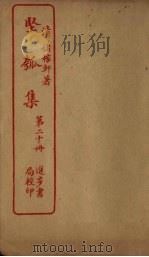 清褚稼軒著
堅瓠集
第二十冊
進步書
局校印